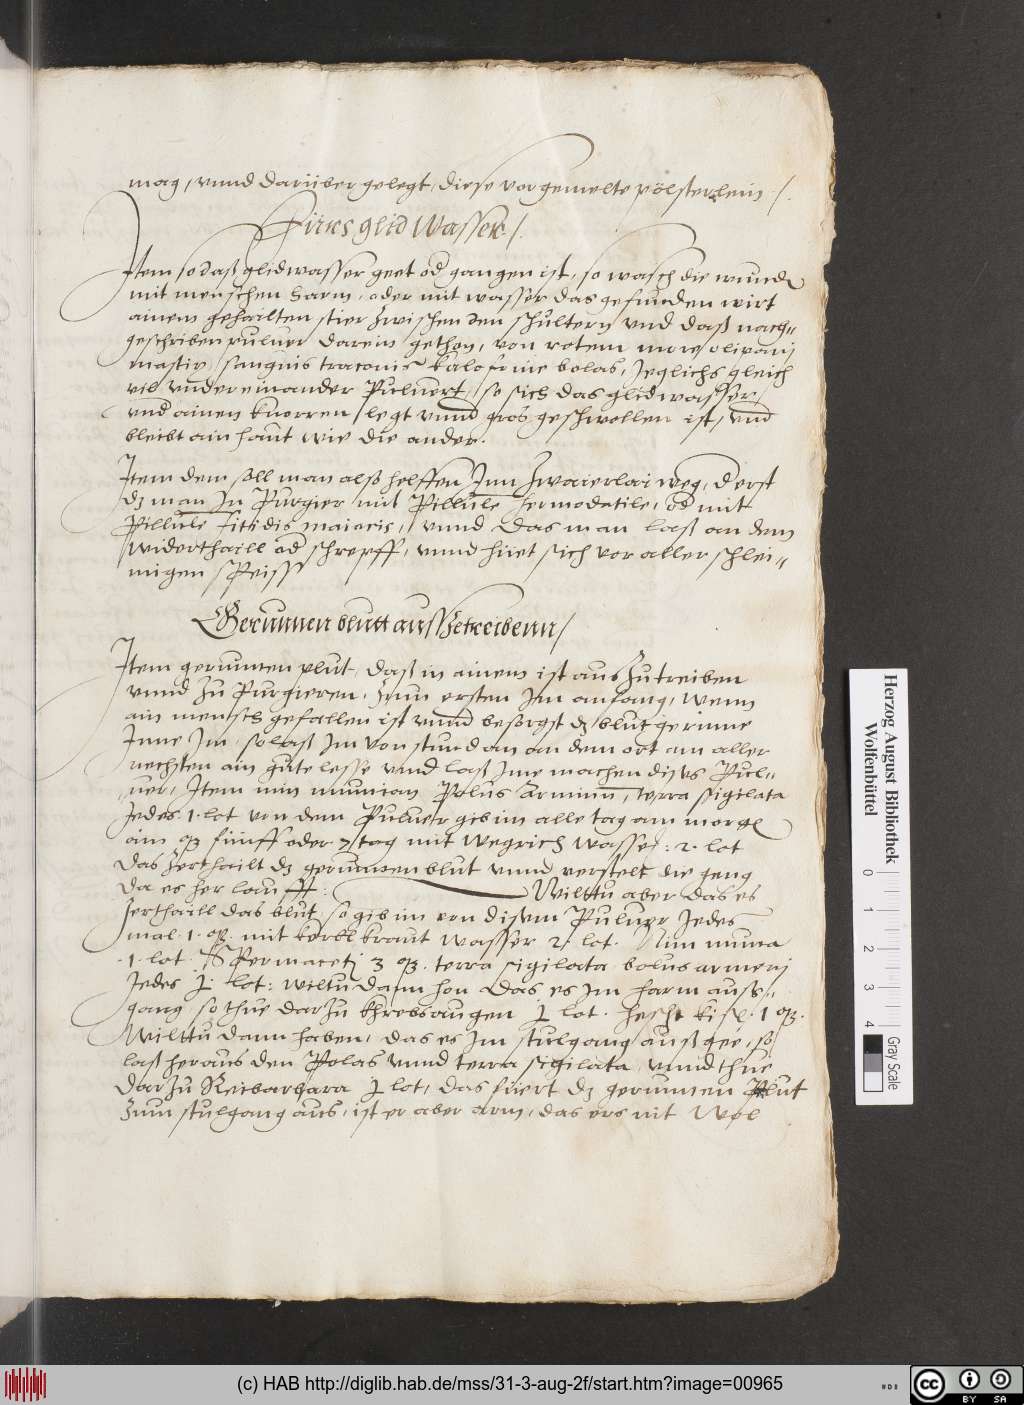 mag, vnnd darüber gelegt, diese vorgemelte pölsterlein /.
Fürs glid Wasser /.
Item so daß glidwasser geet od gangen ist, so wasch die wund
mit menschen harm, oder mit wasser das gefunden wirt
ainem gehailten stier zwischen den schultern vnd daß nach=
geschriben puluer darein gethon, von rotem
mastix, sanguis traconis kalofonie bolas, Jeglichs gleich
vil vndereinander Puluert, so sich das glidwasser,
vnd ainen knorren legt vnnd gros geschwollen ist, vnd
bleibt ain haut wie die ander.
Item dem soll man alß helffen Inn zwaierlai weg, d erst
dz man In Purgier mit Pillule hermodatile, od mit
Pillule maioris, vnnd das man laß an dem
widerthaill od schrepff, vnnd hüet sich vor aller schlei=
migen speiss
Gerunnen blutt aussZetreibenn /
Item gerunnen plut, daß in ainem ist aus zu treiben
vnnd zu Purgieren, Zum ersten Im anfang, Wenn
ain mensch gefallen ist vnnd besorgst dz blut gerinne
Inne Im, so laß Im von stund an an dem ort am aller
nechsten ain gute lesse vnnd laß Ime machen dises Pul=
uer, Item nim mumiam Polus Arminum, terra sigilata
Jedes 1 lot von dem Puluer gib im alle tag am morge
ain fünff oder 7 tag mit Wegrich Wasser : 2 lot
das zerthailt dz gerunnen blut vnnd verstelt die geng
da es her lauff : Wilttu aber das es
zerthaill das blut, so gib im von disem Puluer Jedes
mal 1 mit körbl kraut Wasser 2 lot. Nim mumia
1 lot. Spermaceti 3 terra sigilata bolus armenj
Jedes lot : wiltu dann hon das es Im harm auß=
gang so thue darzu khrebsaugen lot. hecht 1
Wilttu dann haben, das es Im stulgang auß gee, so
laß heraus den Polas vnnd terra sigilata, vnnd thue
darzu Reibarbara lot, das füert dz gerunnen Plut
zum stulgang aus, ist er aber arm, das ers nit Wol
Herzog August Bibliothek
Wolfenbüttel
0 1 2 3 4
Gray Scale
(c) HAB http://diglib.hab.de/mss/31-3-aug-2f/start.htm?image=00965
HAB
cc BY SA